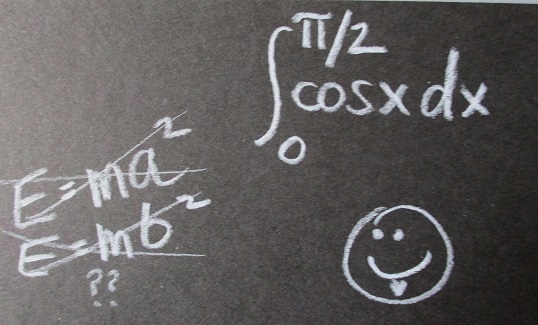 ∫₀^π/2 cosx dx
E=ma²
E=mb²
??